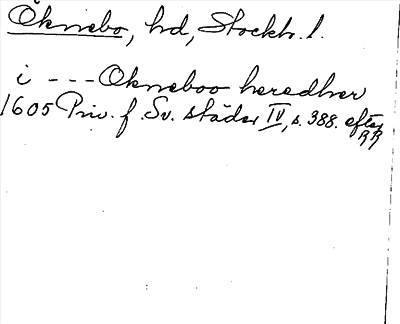 Öknebo, hd, Stockh. l.
i --- Okneboo haredher
1605 Priv. f. Sv. städer IV, s. 388. efter RR